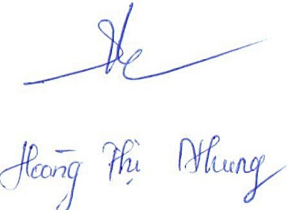 Hoàng Thị Nhung